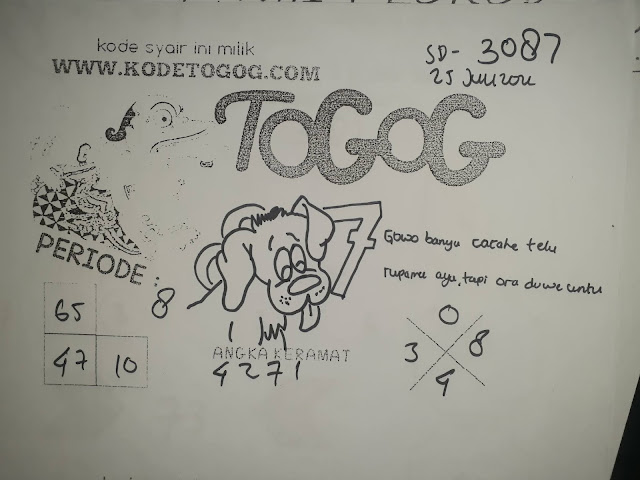 kode syair ini milik
WWW.KODETOGOG.COM
SD- 3087
25 Juni
TOGOG
PERIODE :
7
Gowo banyu carane telu
rupamu ayu, tapi ora duwe untu
65
47 10
8
1
ANGKA KERAMAT
4271
0
3 8
4